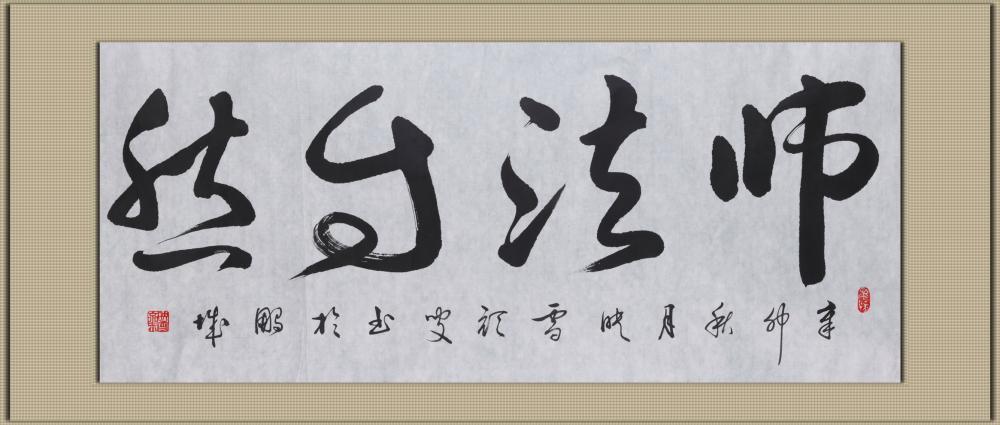 师法自然
辛卯秋月映雪颂叟书于鹏城